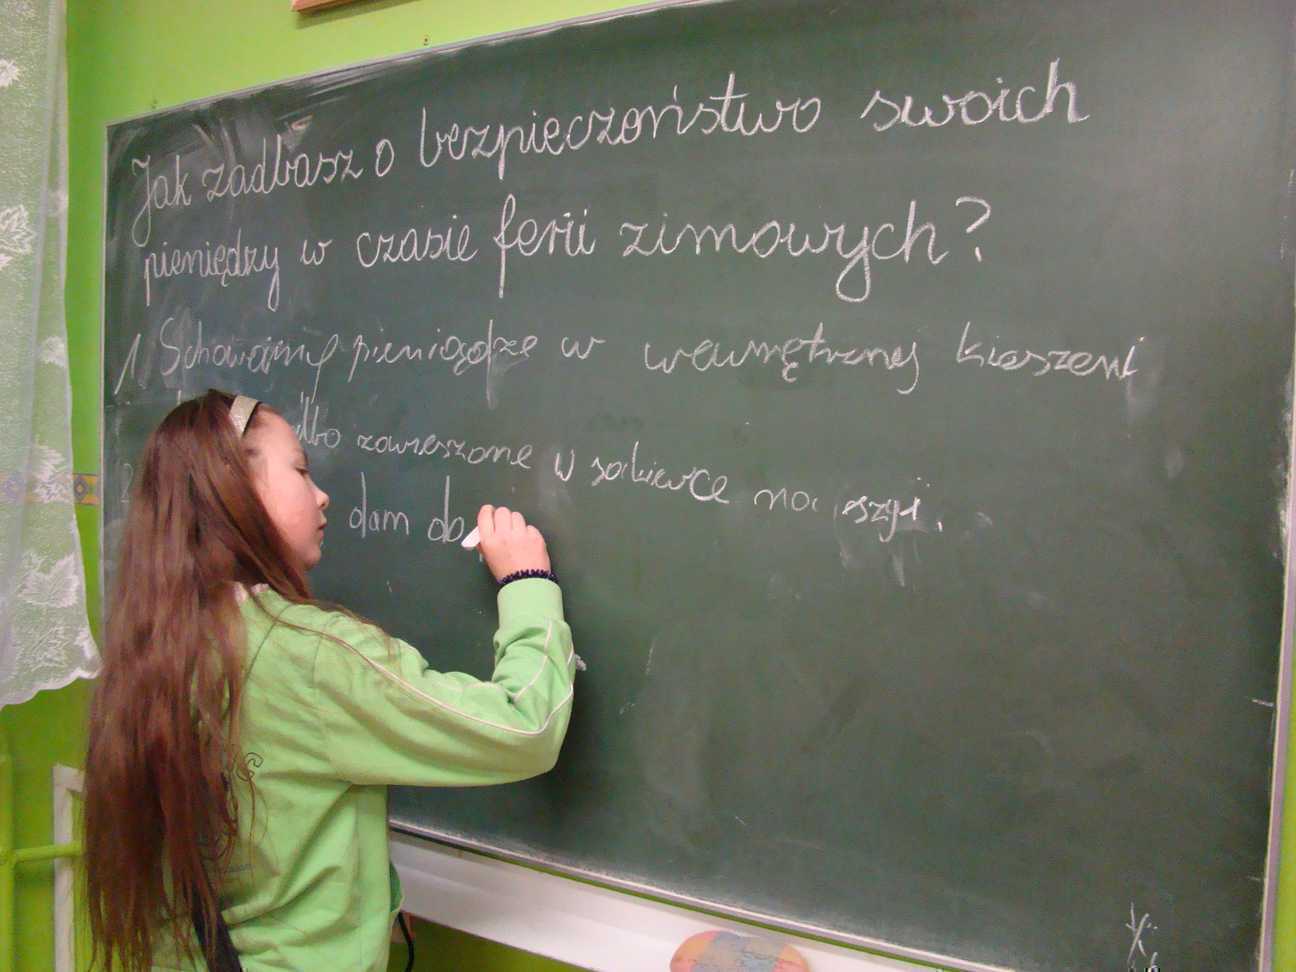 Jak zadbasz o bezpieczeństwo swoich
pieniędzy w czasie ferii zimowych?
1 Schowamy pieniądze w wewnętrznej kieszeni
zawieszone w sakiewce na szyi.
2 dam do